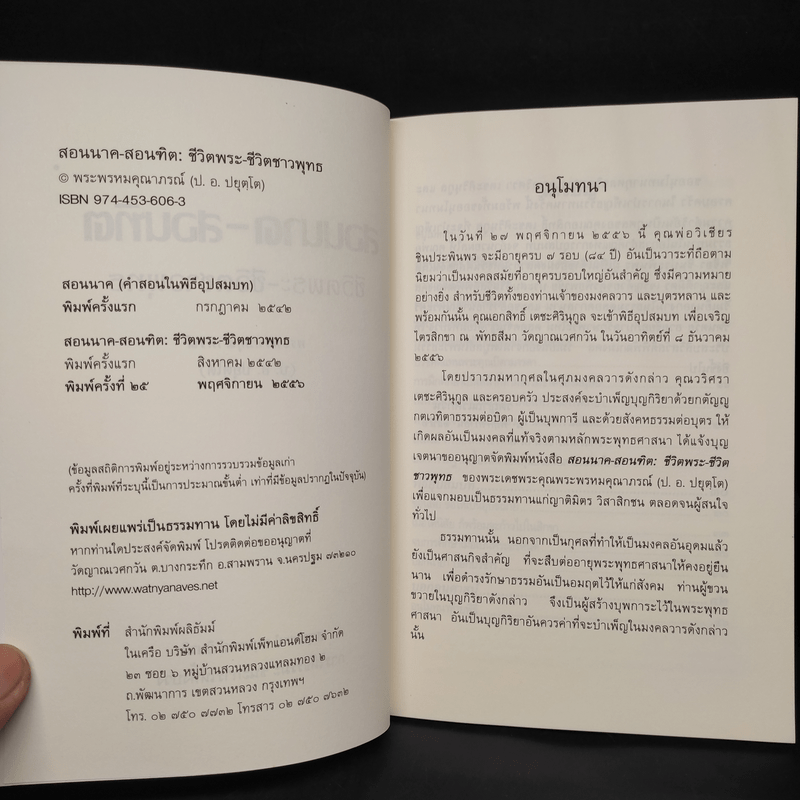 สอนนาค-สอนฑิต: ชีวิตพระ-ชีวิตชาวพุทธ
© พระพรหมคุณาภรณ์ (ป. อ. ปยุตฺโต)
ISBN 974-453-606-3
สอนนาค (คำสอนในพิธีอุปสมบท)
พิมพ์ครั้งแรก กรกฎาคม ๒๕๔๒
สอนนาค-สอนฑิต: ชีวิตพระ-ชีวิตชาวพุทธ
พิมพ์ครั้งแรก สิงหาคม ๒๕๔๒
พิมพ์ครั้งที่ ๒๕ พฤศจิกายน ๒๕๕๖
(ข้อมูลสถิติการพิมพ์อยู่ระหว่างการรวบรวมข้อมูลเก่า
ครั้งที่พิมพ์ที่ระบุนี้เป็นการประมาณขั้นต่ำ เท่าที่มีข้อมูลปรากฏในปัจจุบัน)
พิมพ์เผยแพร่เป็นธรรมทาน โดยไม่มีค่าลิขสิทธิ์
หากท่านใดประสงค์จัดพิมพ์ โปรดติดต่อขออนุญาตที่
วัดญาณเวศกวัน ต.บางกระทึก อ.สามพราน จ.นครปฐม ๗๓๒๑๐
http://www.watnyanaves.net
พิมพ์ที่ สำนักพิมพ์ผลิธัมม์
ในเครือ บริษัท สำนักพิมพ์เพ็ทแอนด์โฮม จำกัด
๒๓ ซอย ๖ หมู่บ้านสวนหลวงแหลมทอง ๒
ถ.พัฒนาการ เขตสวนหลวง กรุงเทพฯ
โทร. ๐๒ ๗๕๐ ๗๗๓๒ โทรสาร ๐๒ ๗๕๐ ๗๖๓๒
อนุโมทนา
ในวันที่ ๒๗ พฤศจิกายน ๒๕๕๖ นี้ คุณพ่อวิเชียร
ชินประพินพร จะมีอายุครบ ๗ รอบ (๘๔ ปี) อันเป็นวาระที่ถือตาม
นิยมว่าเป็นมงคลสมัยที่อายุครบรอบใหญ่อันสำคัญ ซึ่งมีความหมาย
อย่างยิ่ง สำหรับชีวิตทั้งของท่านเจ้าของมงคลวาร และบุตรหลาน และ
พร้อมกันนั้น คุณเอกสิทธิ์ เตชะศิรินุกูล จะเข้าพิธีอุปสมบท เพื่อเจริญ
ไตรสิกขา ณ พัทธสีมา วัดญาณเวศกวัน ในวันอาทิตย์ที่ ๘ ธันวาคม
๒๕๕๖
โดยปรารภมหากุศลในศุภมงคลวารดังกล่าว คุณวริศรา
เตชะศิรินุกูล และครอบครัว ประสงค์จะบำเพ็ญบุญกิริยาด้วยกตัญญุ
กตเวทิตาธรรมต่อบิดา ผู้เป็นบุพการี และด้วยสังคหธรรมต่อบุตร ให้
เกิดผลอันเป็นมงคลที่แท้จริงตามหลักพระพุทธศาสนา ได้แจ้งบุญ
เจตนาขออนุญาตจัดพิมพ์หนังสือ สอนนาค-สอนฑิต: ชีวิตพระ-ชีวิต
ชาวพุทธ ของพระเดชพระคุณพระพรหมคุณาภรณ์ (ป. อ. ปยุตฺโต)
เพื่อแจกมอบเป็นธรรมทานแก่ญาติมิตร วิสาสิกชน ตลอดจนผู้สนใจ
ทั่วไป
ธรรมทานนั้น นอกจากเป็นกุศลที่ทำให้เป็นมงคลอันอุดมแล้ว
ยังเป็นศาสนกิจสำคัญ ที่จะสืบต่ออายุพระพุทธศาสนาให้คงอยู่ยืน
นาน เพื่อดำรงรักษาธรรมอันเป็นอมฤตไว้ให้แก่สังคม ท่านผู้ขวน
ขวายในบุญกิริยาดังกล่าว จึงเป็นผู้สร้างบุพการะไว้ในพระพุทธ
ศาสนา อันเป็นบุญกิริยาอันควรค่าที่จะบำเพ็ญในมงคลวารดังกล่าว
นั้น